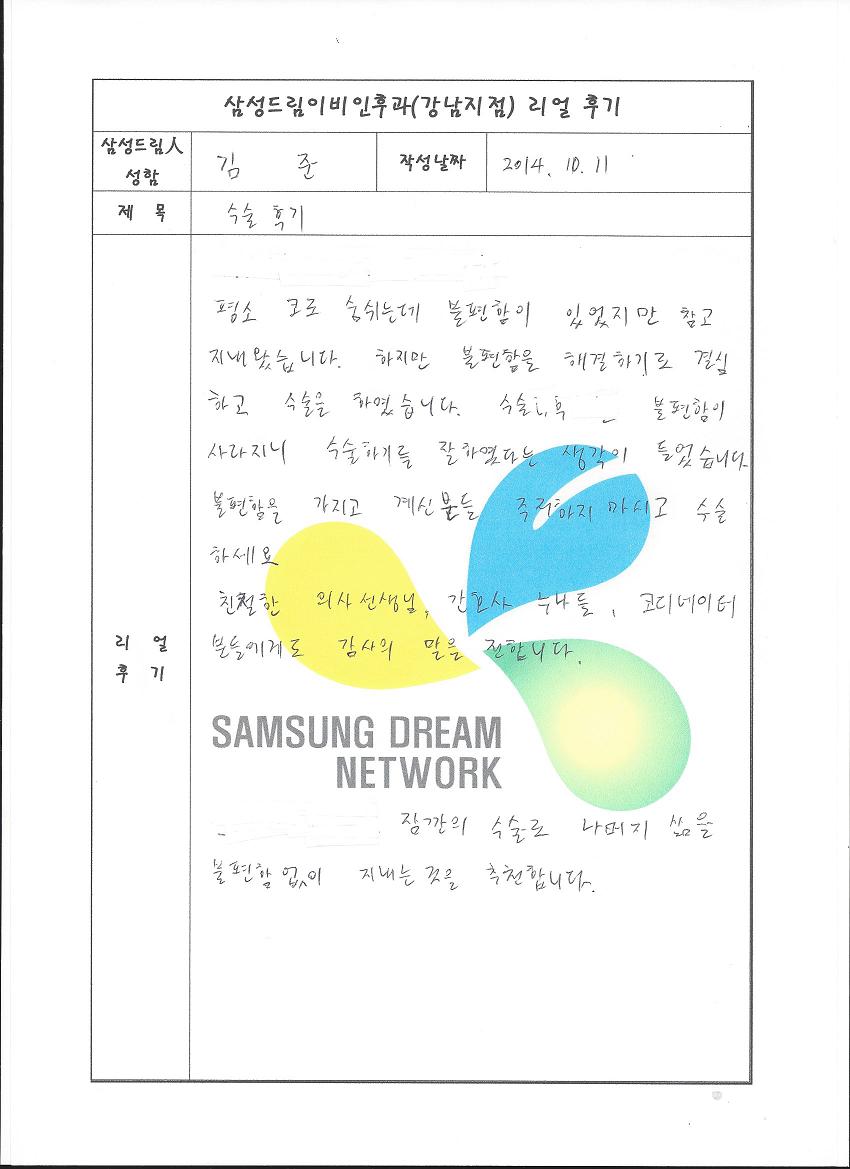 삼성드림이비인후과(강남지점) 리얼 후기
삼성드림人
성함
김 준
작성날짜
2014. 10. 11
제 목
수술 후기
평소 코로 숨쉬는데 불편함이 있었지만 참고
지내왔습니다. 하지만 불편함을 해결하기로 결심
하고 수술을 하였습니다. 수술 후 불편함이
사라지니 수술하기를 잘하였다는 생각이 들었습니다
불편함을 가지고 계신분들 주저하지 마시고 수술
하세요
친절한 의사선생님, 간호사 누나들, 코디네이터
분들에게도 감사의 말을 전합니다.
리 얼
후 기
SAMSUNG DREAM
NETWORK
잠깐의 수술로 나머지 삶을
불편함없이 지내는것을 추천합니다.